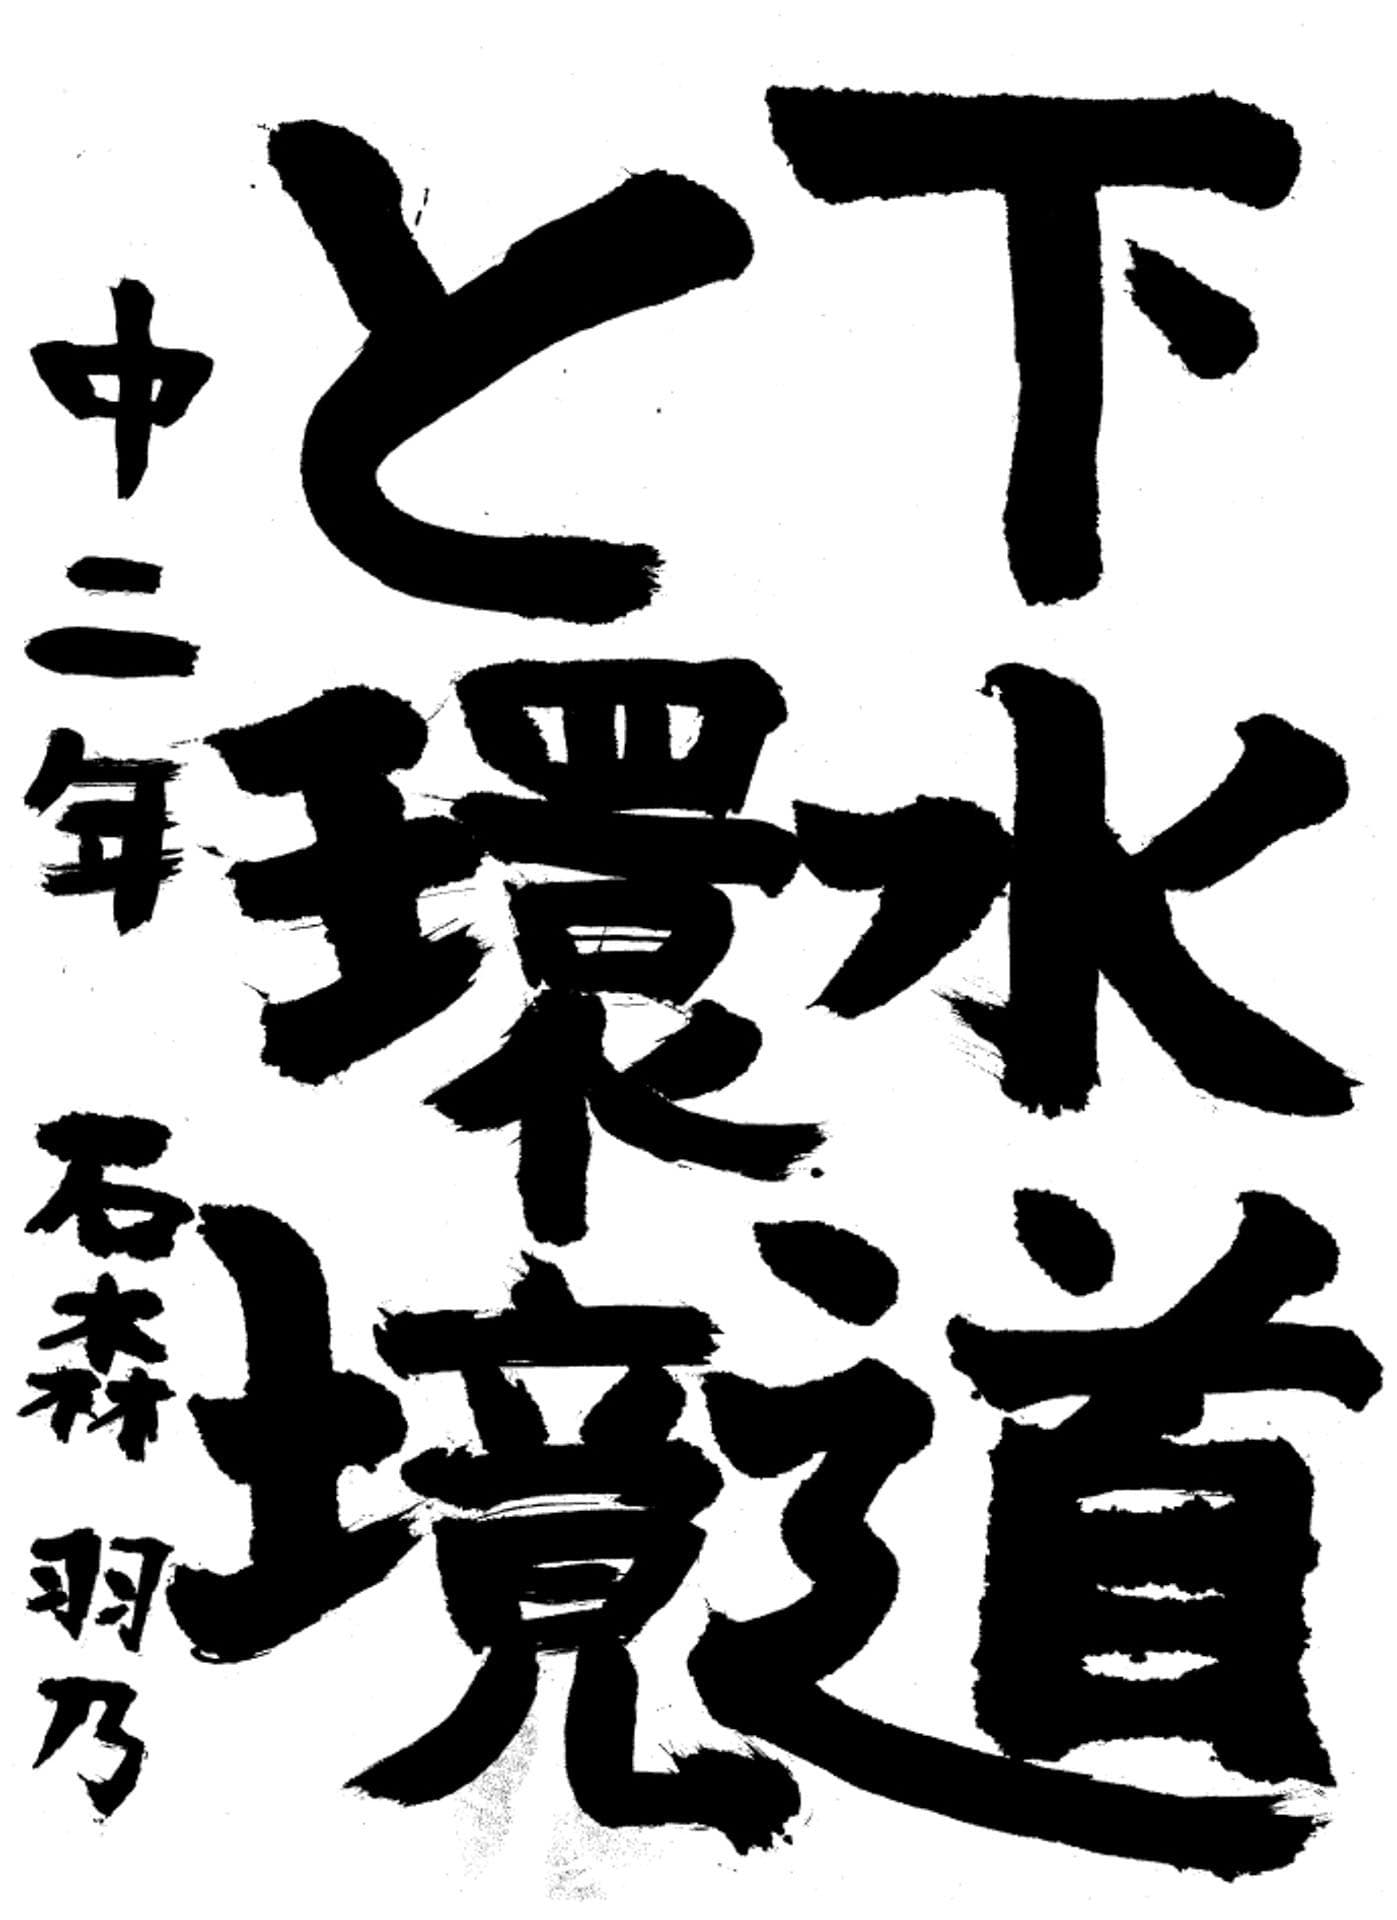 下水道
と環境
中二年 石森羽乃